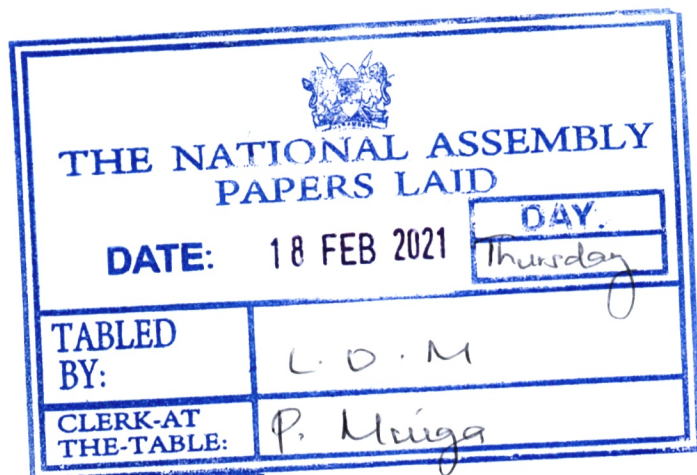 THE NATIONAL ASSEMBLY
PAPERS LAID
DATE: 18 FEB 2021
DAY.
Thursday
TABLED
BY:
L.O.M
CLERK-AT
THE-TABLE:
P.